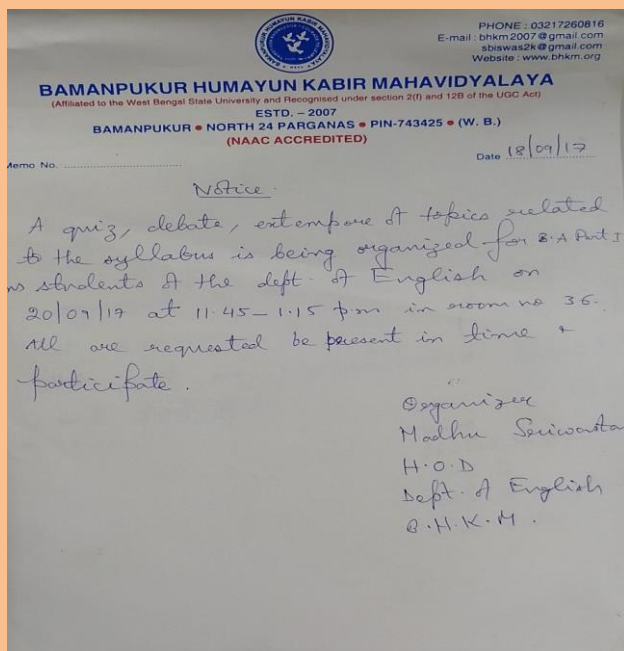 PHONE : 03217260816
E-mail : bhkm2007@gmail.com
sbiswas2k@gmail.com
Website : www.bhkm.org
BAMANPUKUR HUMAYUN KABIR MAHAVIDYALAYA
(Affiliated to the West Bengal State University and Recognised under section 2(f) and 12B of the UGC Act)
ESTD. – 2007
BAMANPUKUR • NORTH 24 PARGANAS • PIN-743425 • (W. B.)
(NAAC ACCREDITED)
Memo No. ..................................
Date 18/09/17
Notice.
A quiz, debate, extempore of topics related
to the syllabus is being organized for B.A Part I
ns students of the dept. of English on
20/09/17 at 11.45 – 1.15 pm in room no 36.
All are requested be present in time &
participate.
Organizer
Madhu
H.O.D
Dept. of English
B.H.K.M.